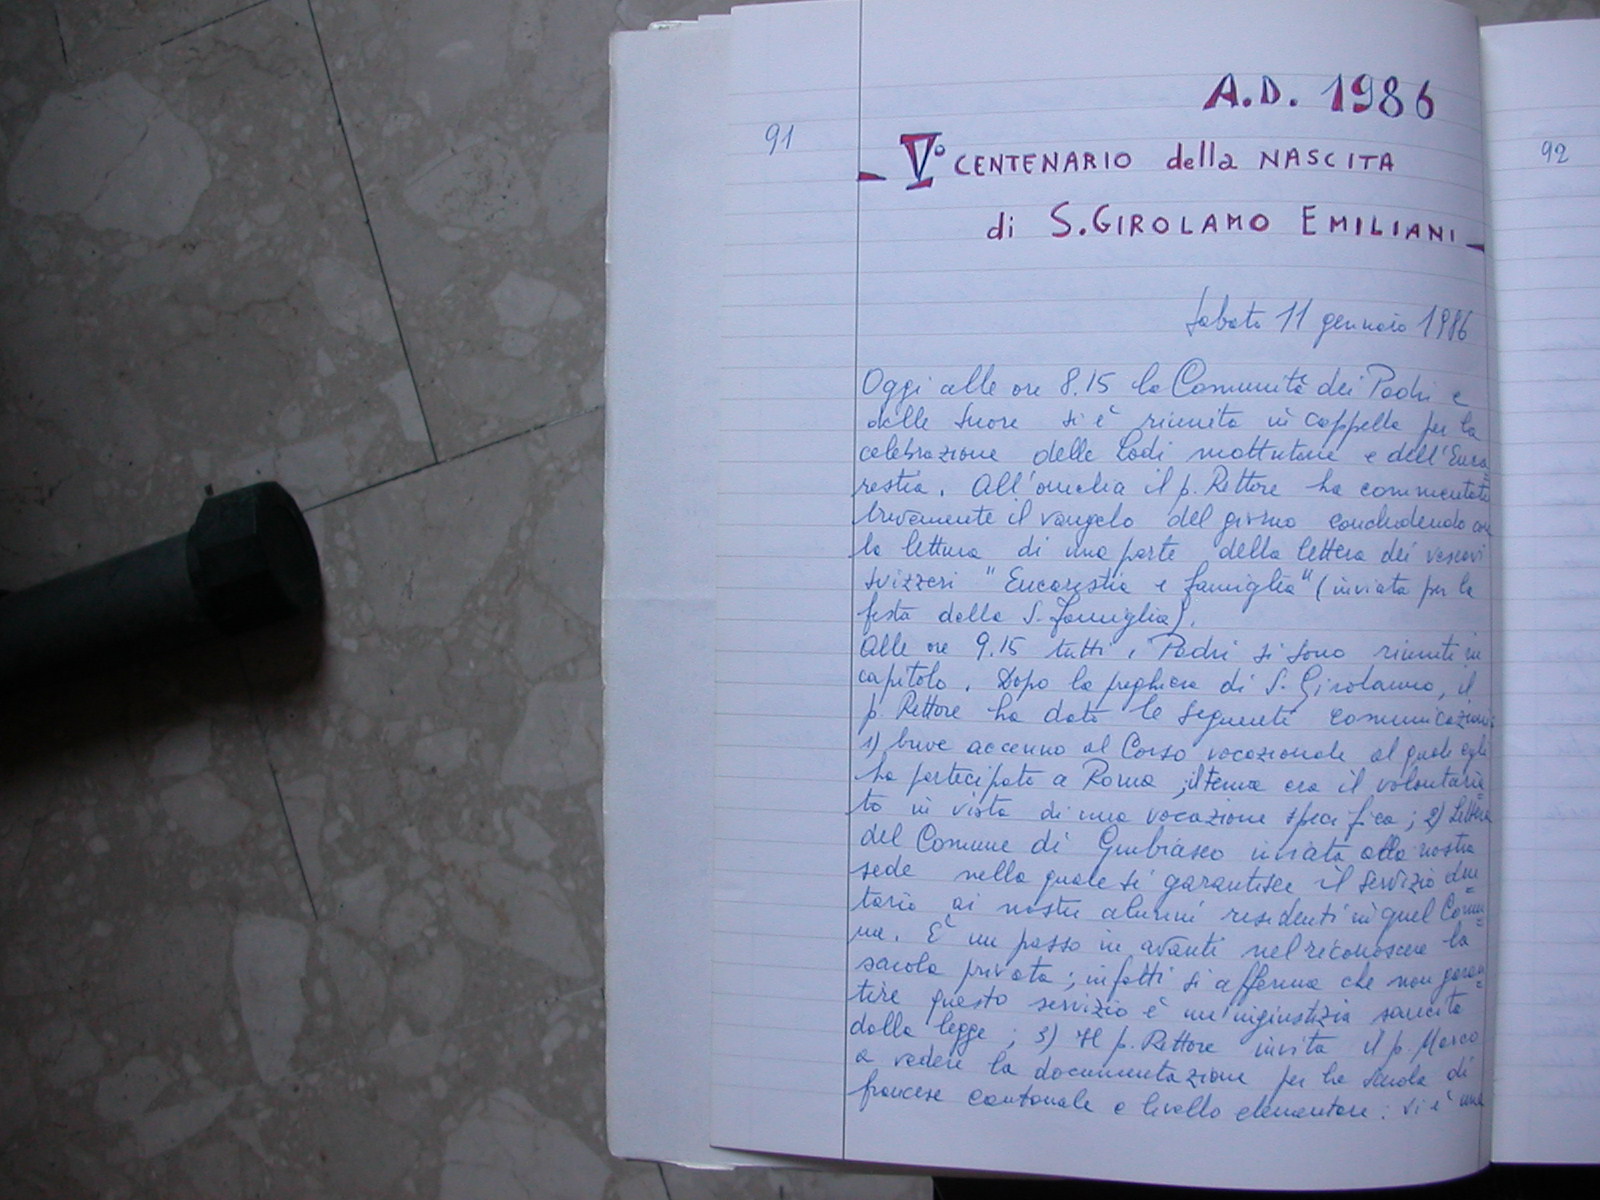 A.D. 1986
91
V° CENTENARIO della NASCITA
di S. GIROLAMO EMILIANI
Sabato 11 gennaio 1986
Oggi alle ore 8.15 la Comunità dei Padri e
delle Suore si è riunita in cappella per la
celebrazione delle Lodi mattutine e dell'Euca
restia. All'omelia il p. Rettore ha commentato
brevemente il vangelo del giorno concludendo con
la lettura di una parte della lettera dei vescovi
svizzeri "Eucarestia e famiglia" (inviata per la
festa della S. Famiglia).
Alle ore 9.15 tutti i Padri si sono riuniti in
capitolo. Dopo la preghiera di S. Girolamo, il
p. Rettore ha dato le seguenti comunicazioni
1) breve accenno al Corso vocazionale al quale egli
ha partecipato a Roma; il tema era il volontaria=
to in vista di una vocazione specifica; 2) Lettera
del Comune di Giubiasco inviata alla nostra
sede nella quale si garantisce il servizio den=
tario ai nostri alunni residenti in quel Comu=
ne. È un passo in avanti nel riconoscere la
scuola privata; infatti si afferma che non garan=
tire questo servizio è un'ingiustizia sancita
dalla legge; 3) Il p. Rettore invita il p. Marco
a vedere la documentazione per la scuola di
francese cantonale a livello elementare: vi è una
92